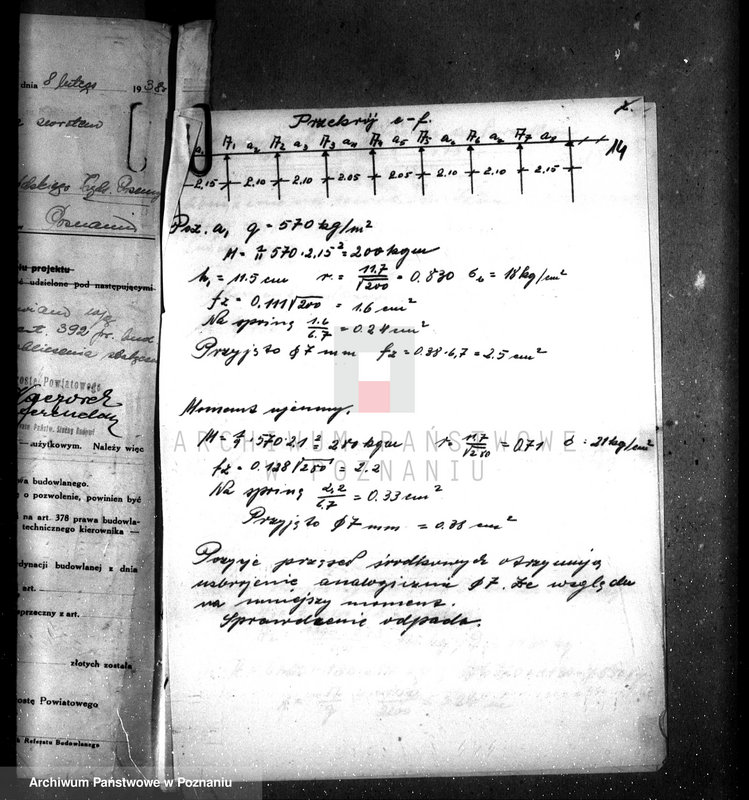 dnia 8 lutego 1938 r.
Poznaniu
iu projektu
udzielone pod następującymi
art. 392 pr. bud.
Powiatowego
użytkowym. Należy więc
wa budowlanego.
o pozwolenie, powinien być
i na art. 378 prawa budowla-
technicznego kierownika —
ynacji budowlanej z dnia
art.
sprzeczny z art.
złotych została
ostę Powiatowego
Referatu Budowlanego
Przekrój e-f.
14
A1 a2 A2 a3 A3 a4 A4 a5 A5 a6 A6 a7 A7 a8
2.15 2.10 2.10 2.05 2.05 2.10 2.10 2.15
Poz. a1 q = 570 kg/m²
M = 1/11 570 · 2.15² = 200 kgm
h1 = 11.5 cm r = 11.7/√200 = 0.830 σb = 18 kg/cm²
fz = 0.111 √200 = 1.6 cm²
Na sprinę 1.6/6.7 = 0.24 cm²
Przyjęto φ 7 mm fz = 0.38 · 6,7 = 2.5 cm²
Moment ujemny.
M = 570 · 2.1² = 280 kgm r = 11.7/√280 = 0.71 σ = 21 kg/cm²
fz = 0.128 √280 = 2.2
Na sprinę 2,2/6.7 = 0.33 cm²
Przyjęto φ 7 mm = 0.38 cm²
Pozycje przęseł środkowych otrzymują
uzbrojenie analogicznie φ 7. Ze względu
na mniejszy moment.
Sprawdzenie odpada.
ARCHIWUM PAŃSTWOWE
W POZNANIU
Archiwum Państwowe w Poznaniu